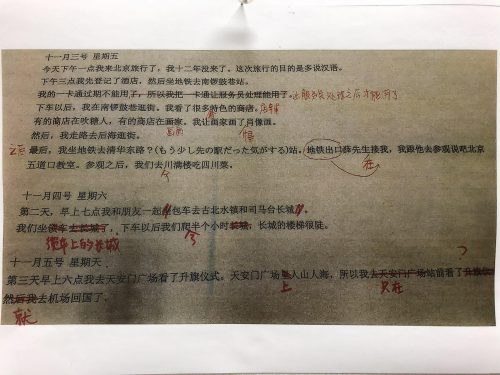 十一月三号 星期五
今天下午一点我来北京旅行了，我十二年没来了。这次旅行的目的是多说汉语。
下午三点我先登记了酒店，然后坐地铁去南锣鼓巷站。
我的一卡通过期不能用了，所以我把一卡通让服务员处理能用了。
下车以后，我在南锣鼓巷逛街。我看了很多特色的商店。店铺
有的商店在吹糖人，有的商店在画家。我让画家画了肖像画。
然后，我走路去后海逛街。
之后 最后，我坐地铁去清华东路？(もう少し先の駅だった気がする)站。地铁出口薛先生接我，我跟他去参观说吧北京
五道口教室。参观之后，我们去川满楼吃四川菜。
在
十一月四号 星期六
第二天，早上七点我和朋友一起坐包车去古北水镇和司马台长城。
我们坐缆车去长城了，下车以后我们爬半个小时长城，长城的楼梯很陡。
缆车上的长城
十一月五号 星期天
第三天早上六点我去天安门广场看了升旗仪式。天安门广场是人山人海，所以我去天安门广场站前看了升旗
上
只在
然后我去机场回国了。
就